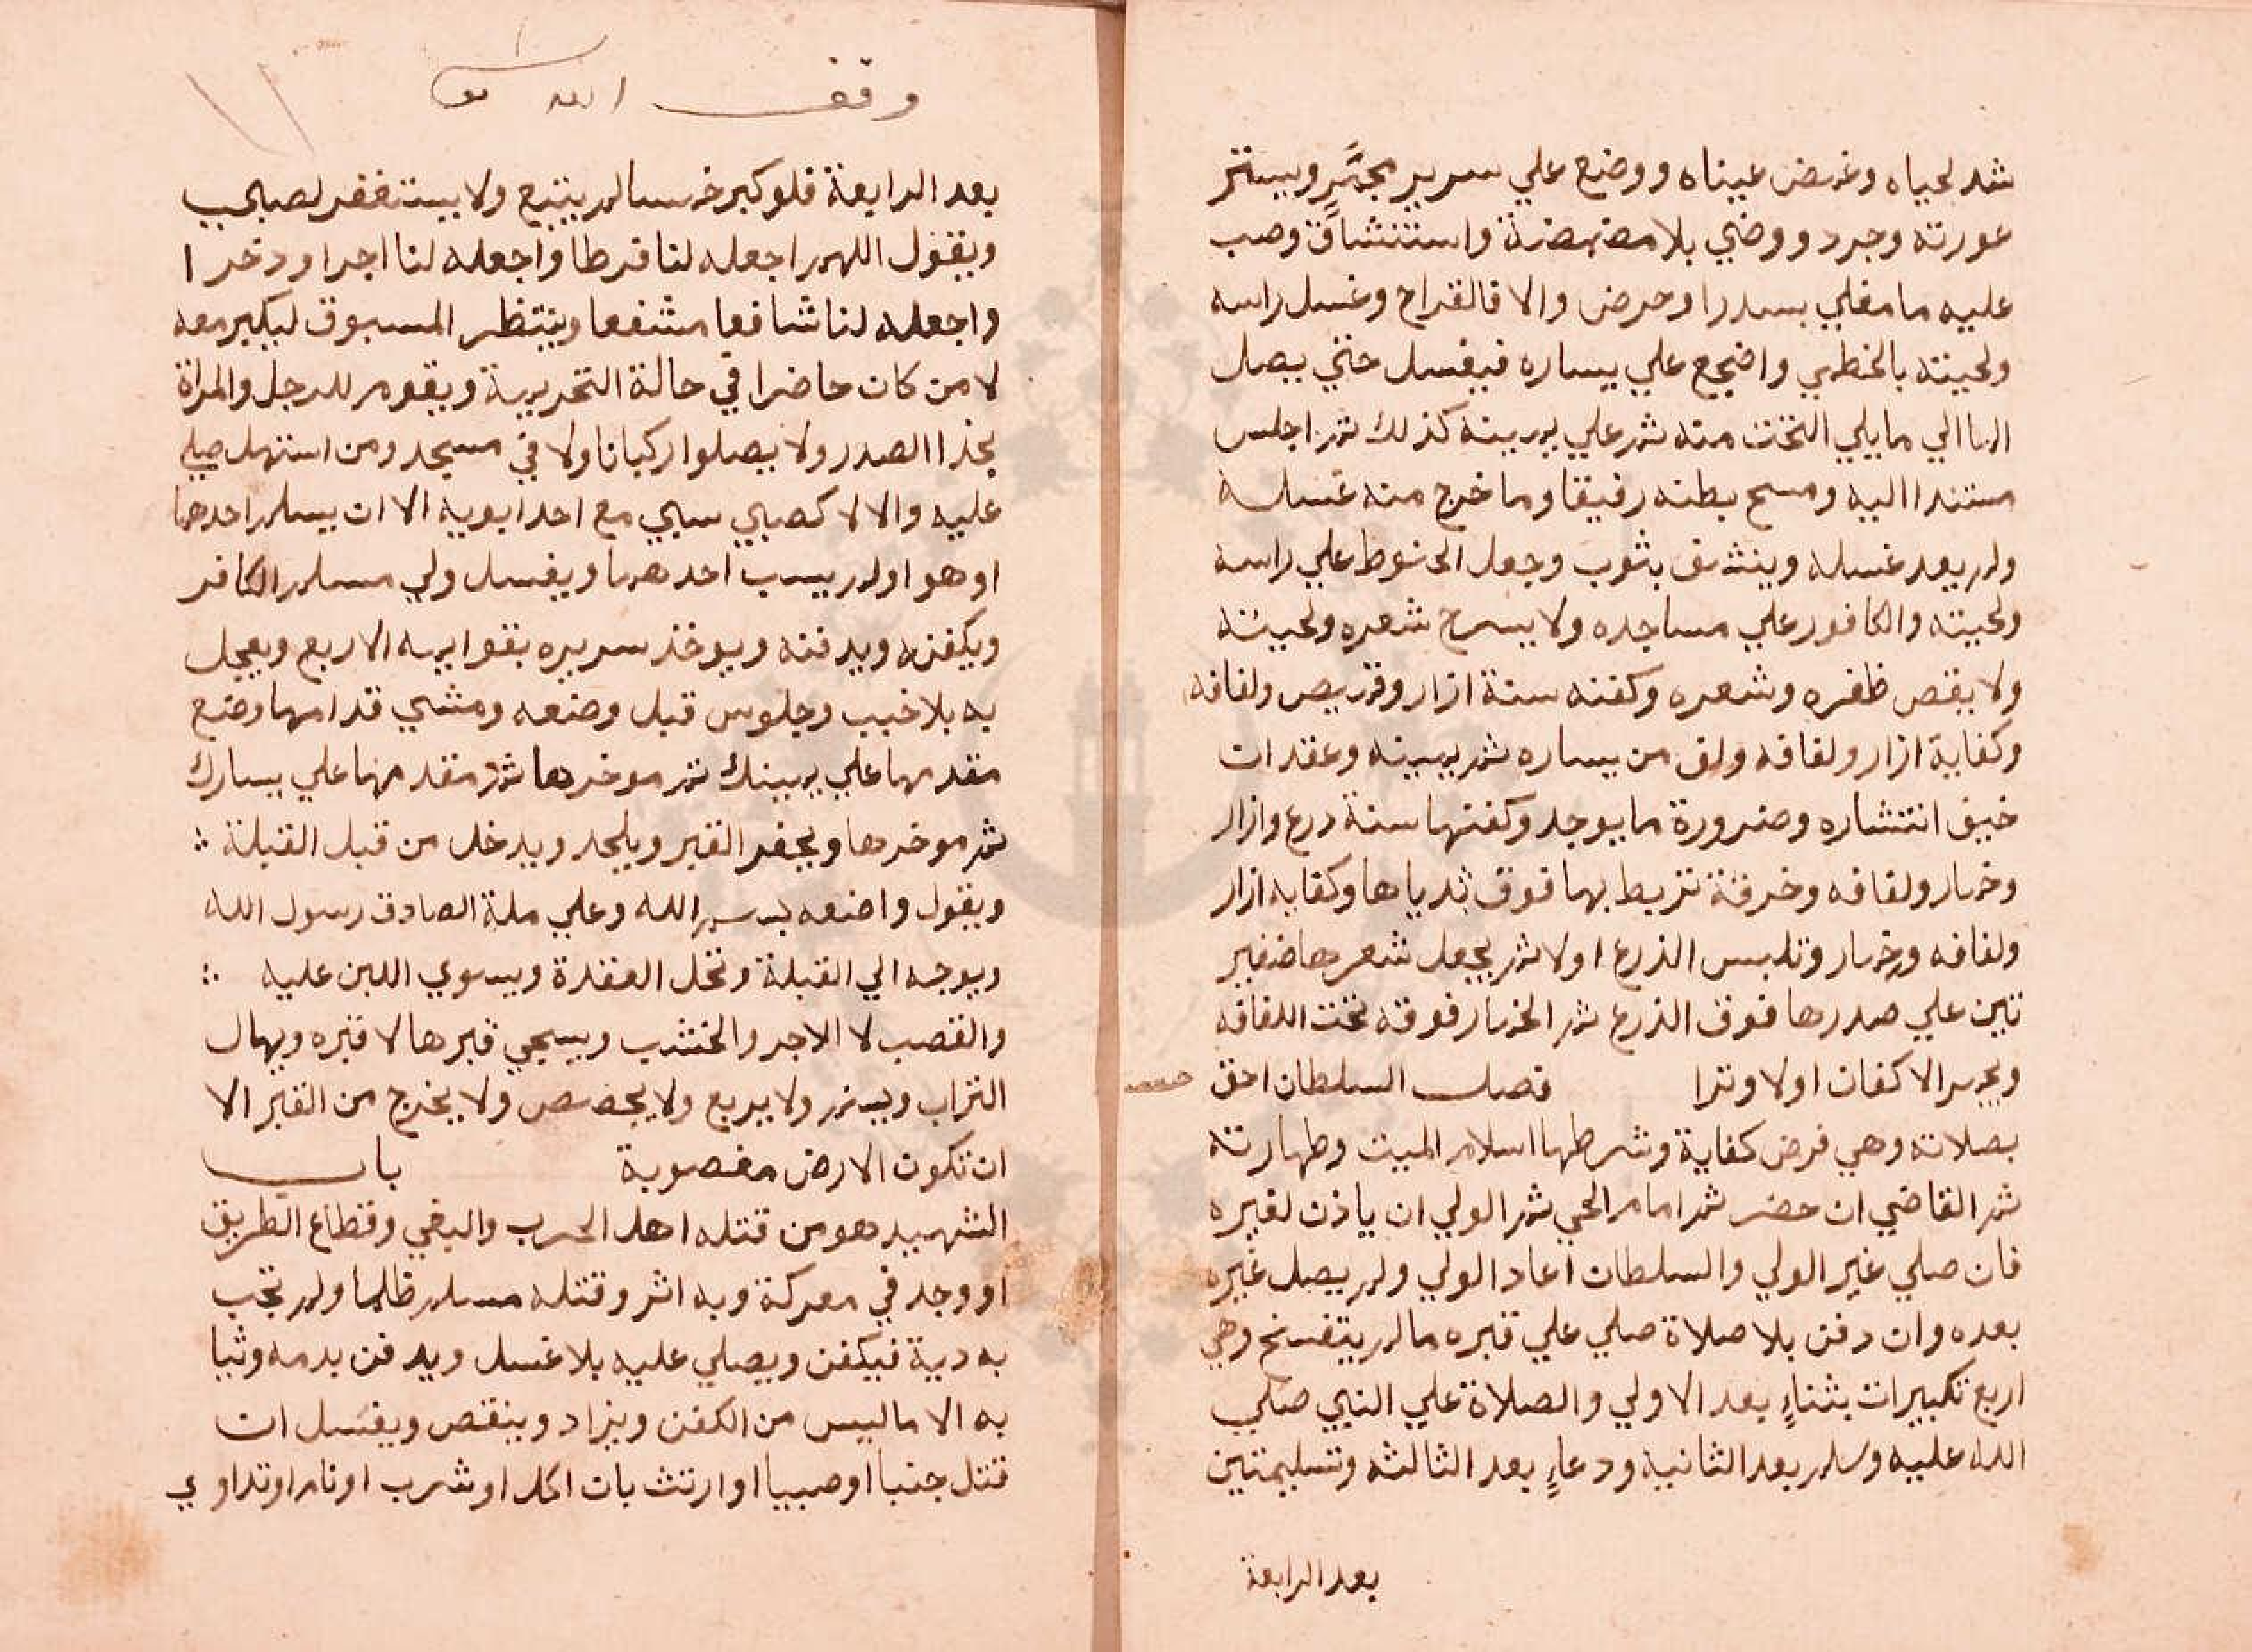 شد لحياه وغمض عيناه ووضع علي سرير مجمَّرٍ ويستر
عورته وجرد ووضي بلا مضمضة واستنشاق وصب
عليه ما مغلي بسدر او حرض والا فالقراح وغسل راسه
ولحيته بالخطمي واضجع علي يساره فيغسل حتي يصل
الما الي ما يلي التخت منه ثم علي يمينه كذلك ثم اجلس
مستندا اليه ومسح بطنه رفيقا وما خرج منه غسله
ولم يعد غسله وينشف بثوب وجعل الحنوط علي راسه
ولحيته والكافور علي مساجده ولا يسرح شعره ولحيته
ولا يقص ظفره وشعره وكفنه سنة ازار وقميص ولفافه
وكفاية ازار ولفافه ولف من يساره ثم يمينه وعقد ان
خيف انتشاره وضرورة ما يوجد وكفنها سنة درع وازار
وخمار ولفافه وخرقة تربط بها فوق ثدياها وكفايه ازار
ولفافه وخمار وتلبس الذرع اولا ثم يجعل شعرها ضفير
تين علي صدرها فوق الذرع ثم الخمار فوقه تحت اللفافه
ويجمر الاكفان اولا وترا فصل السلطان احق
بصلاته وهي فرض كفاية وشرطها اسلام الميت وطهارته
ثم القاضي ان حضر ثم امام الحي ثم الولي ان ياذن لغيره
فان صلي غير الولي والسلطان اعاد الولي ولم يصل غيره
بعده وان دفن بلا صلاة صلي علي قبره ما لم يتفسخ وهي
اربع تكبيرات بثناءٍ بعد الاولي والصلاة علي النبي صلي
الله عليه وسلم بعد الثانية ودعاءٍ بعد الثالثه وتسليمتين
بعد الرابعة
وقف الله
بعد الرابعة فلو كبر خمسا لم يتبع ولا يستغفر لصبي
ويقول اللهم اجعله لنا فرطا واجعله لنا اجرا وذخرا
واجعله لنا شافعا مشفعا وينتظر المسبوق ليكبر معه
لا من كان حاضرا في حالة التحريمة ويقوم للرجل والمراة
بحذا الصدر ولا يصلوا ركبانا ولا في مسجد ومن استهل صلي
عليه والا لا كصبي سبي مع احد ابويه الا ان يسلم احدهما
او هو او لم يسب احدهما ويغسل ولي مسلم الكافر
ويكفنه ويدفنه ويوخذ سريره بقوايمه الاربع ويعجل
به بلا خبب وجلوس قبل وضعه ومشي قدامها وضع
مقدمها علي يمينك ثم موخرها ثم مقدمها علي يسارك
ثم موخرها ويحفر القبر ويلحد ويدخل من قبل القبلة
ويقول واضعه بسم الله وعلي ملة الصادق رسول الله
ويوجه الي القبلة وتحل العقدة ويسوي اللبن عليه
والقصب لا الاجر والخشب ويسجي قبرها لا قبره ويهال
التراب ويسنم ولا يربع ولا يجصص ولا يخرج من القبر الا
ان تكون الارض مغصوبة باب
الشهيد هو من قتله اهل الحرب والبغي وقطاع الطريق
او وجد في معركة وبه اثر وقتله مسلم ظلما ولم تجب
به دية فيكفن ويصلي عليه بلا غسل ويدفن بدمه وثيا
به الا ما ليس من الكفن ويزاد وينقص ويغسل ان
قتل جنبا او صبيا او ارتث بان اكل او شرب او نام او تداوي